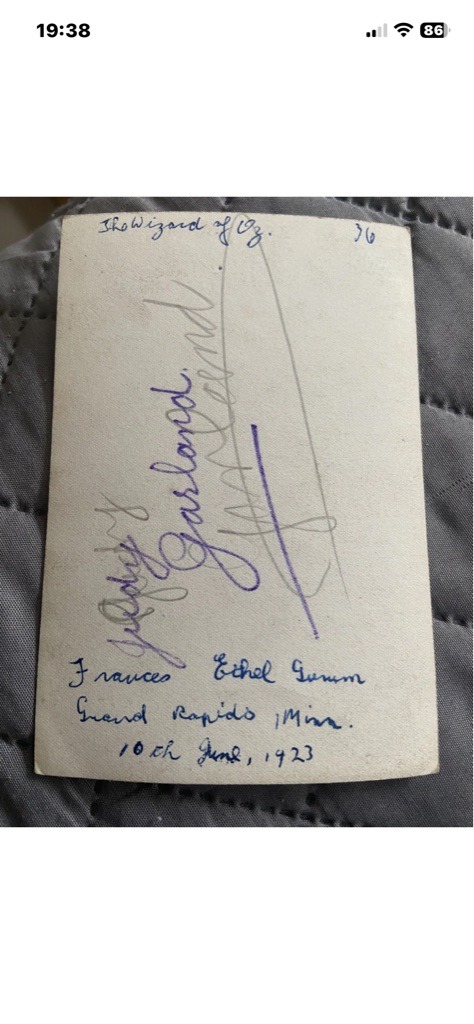 19:38
86
The Wizard of Oz. 36
Judy
Garland
Judy
Garland.
Frances Ethel Gumm
Grand Rapids, Minn.
10th June, 1923